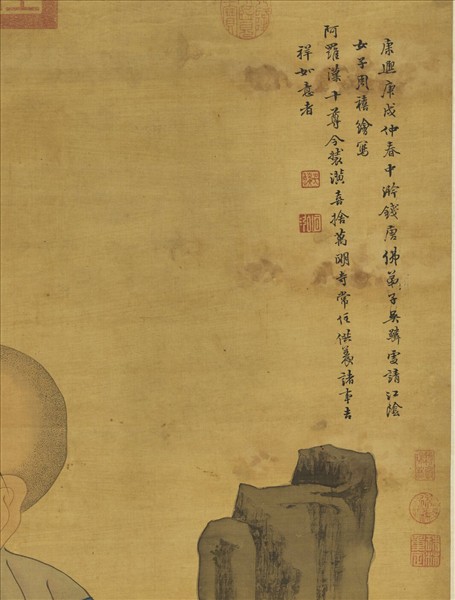 康熙庚戌仲春中澣錢唐佛弟子吳請江陰
女子周禧繪寫
阿羅漢十尊今裝潢喜捨萬明寺常住供養諸事吉
祥如意者